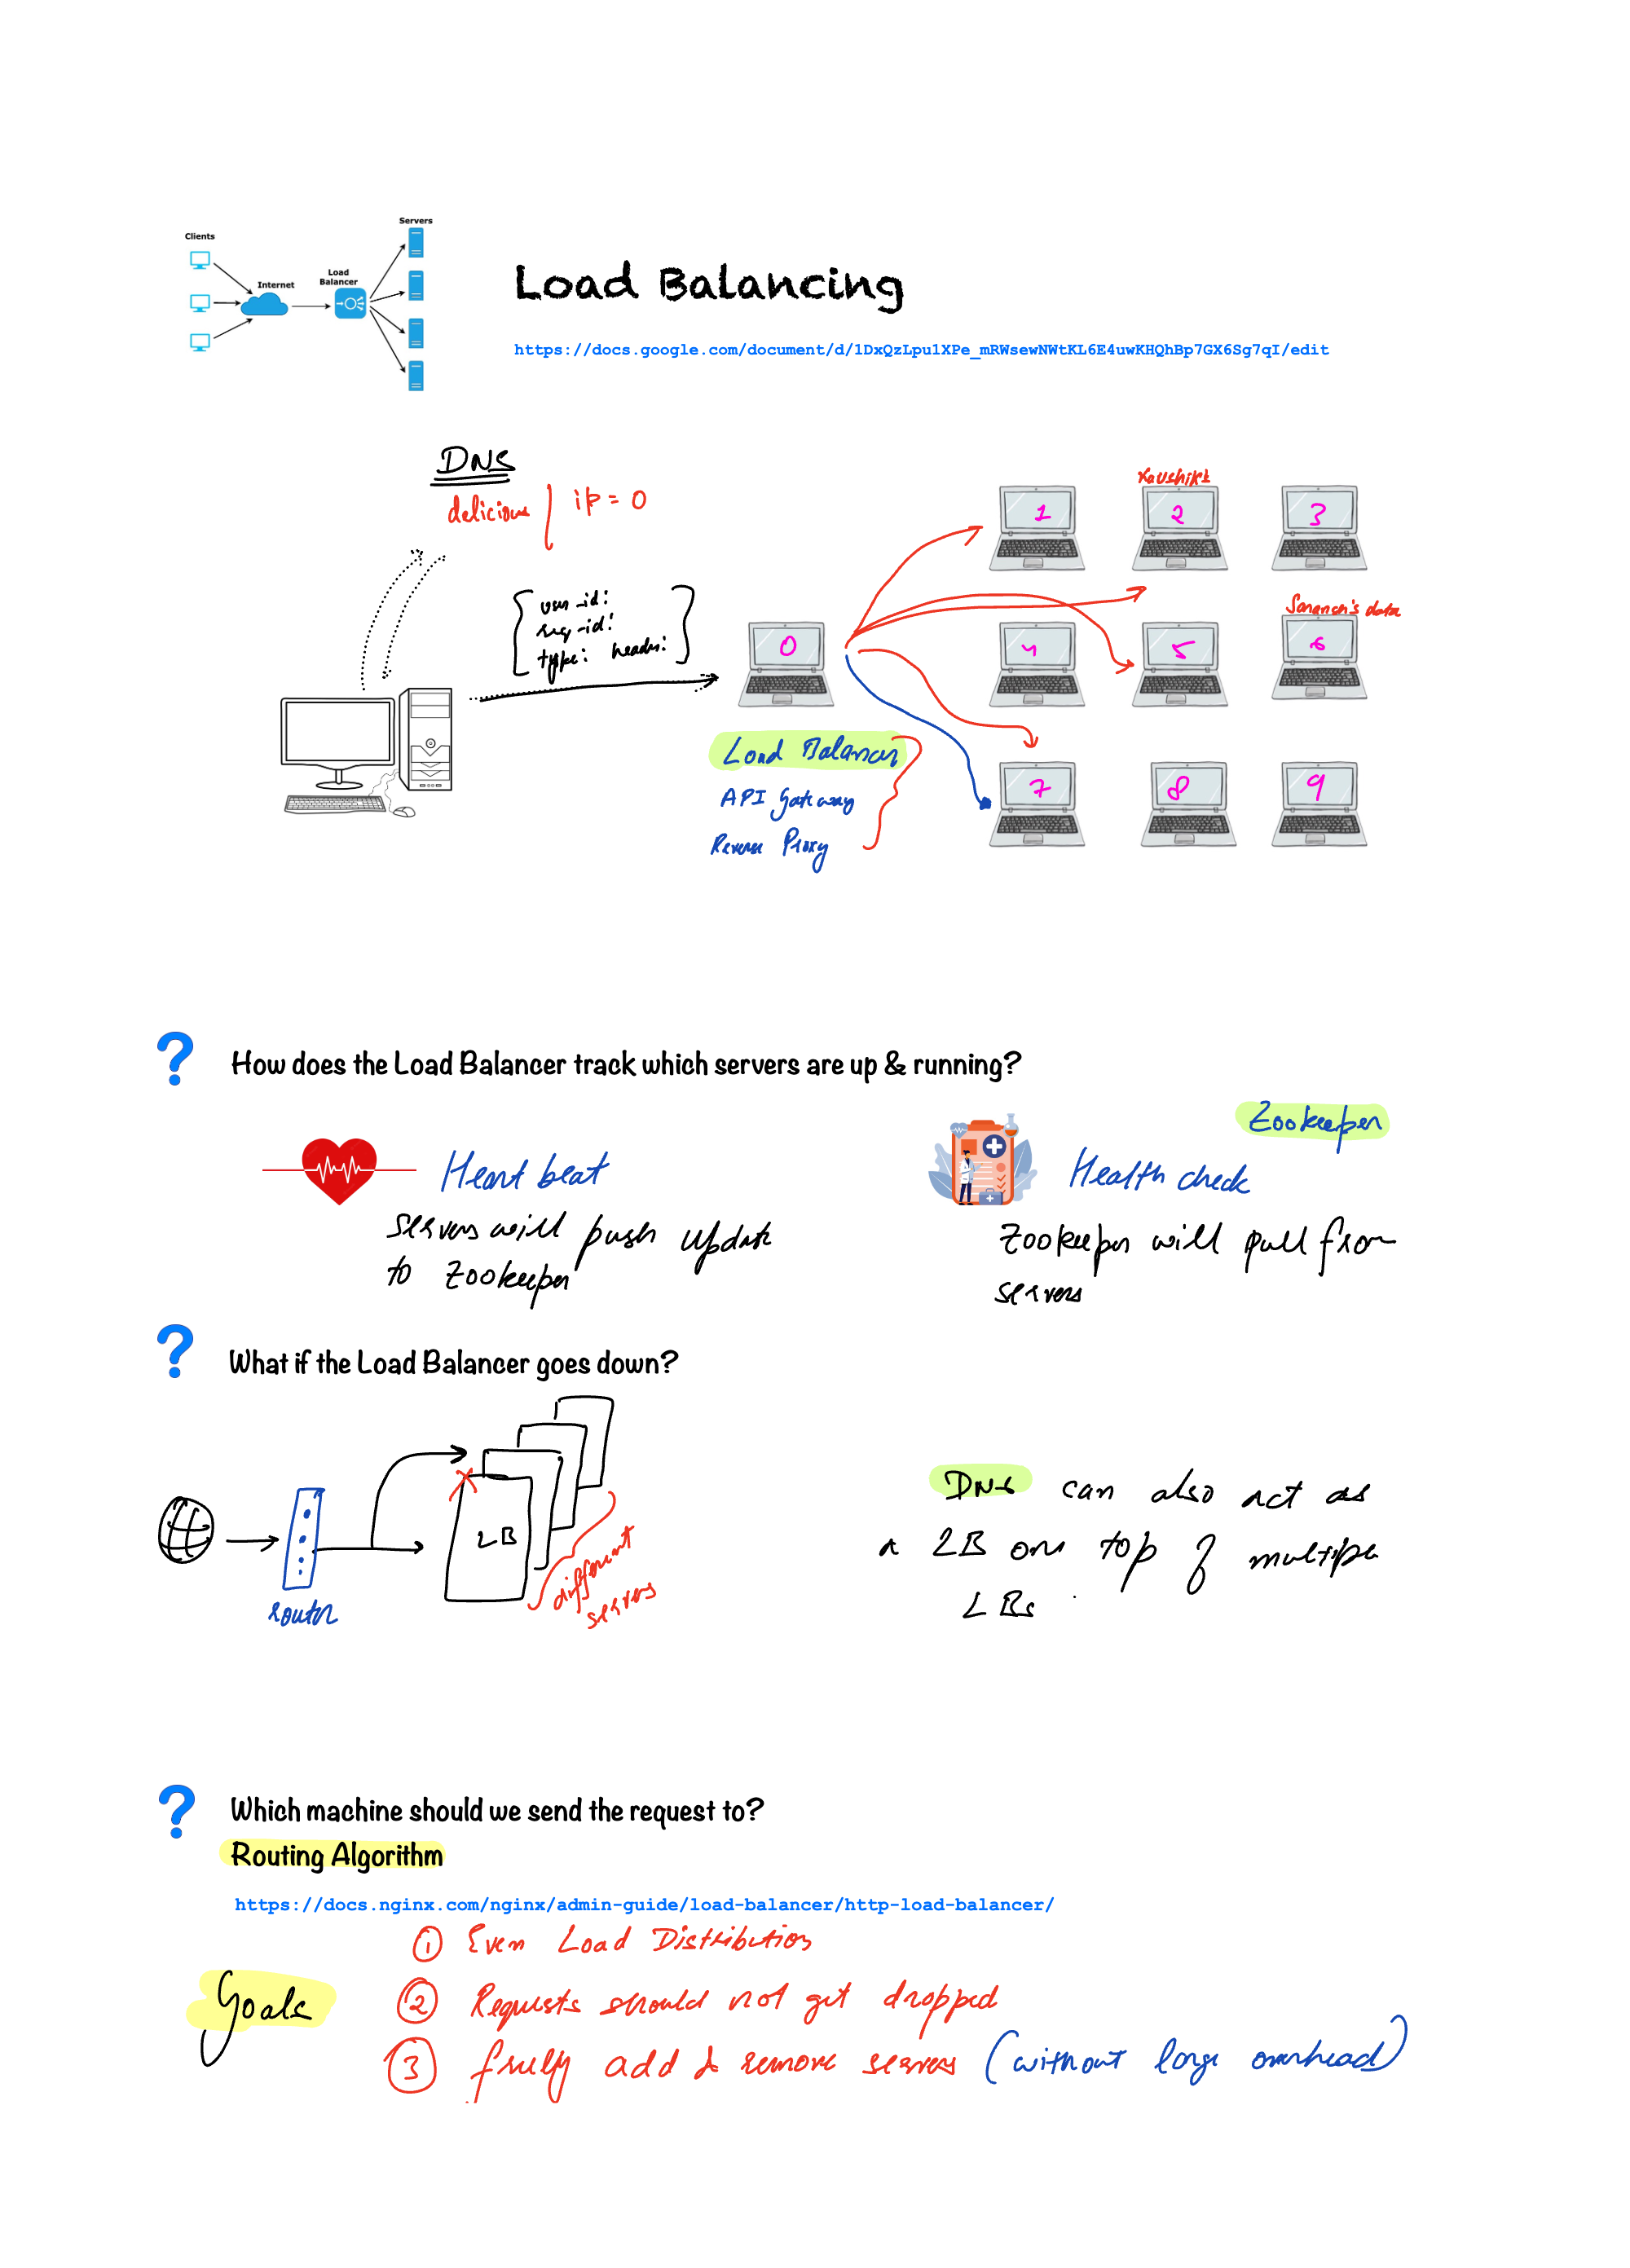 Servers
Clients
Load
Balancer
Internet
Load Balancing
https://docs.google.com/document/d/1DxQzLpu1XPe_mRWsewNWtKL6E4uwKHQhBp7GX6Sg7qI/edit
DNS
delicious | ip = 0
Kaushik's
1 2 3
user-id:
req-id:
type: header:
Saransh's data
0
4 5 6
Load Balancer
API Gateway
Reverse Proxy
7 8 9
? How does the Load Balancer track which servers are up & running?
Zookeeper
Heart beat
Health check
servers will push update
to Zookeeper
Zookeeper will pull from
servers
? What if the Load Balancer goes down?
LB
router
different
servers
DNS can also act as
a LB on top of multiple
LBs.
? Which machine should we send the request to?
Routing Algorithm
https://docs.nginx.com/nginx/admin-guide/load-balancer/http-load-balancer/
Goals
1 Even Load Distribution
2 Requests should not get dropped
3 freely add & remove servers (without large overhead)